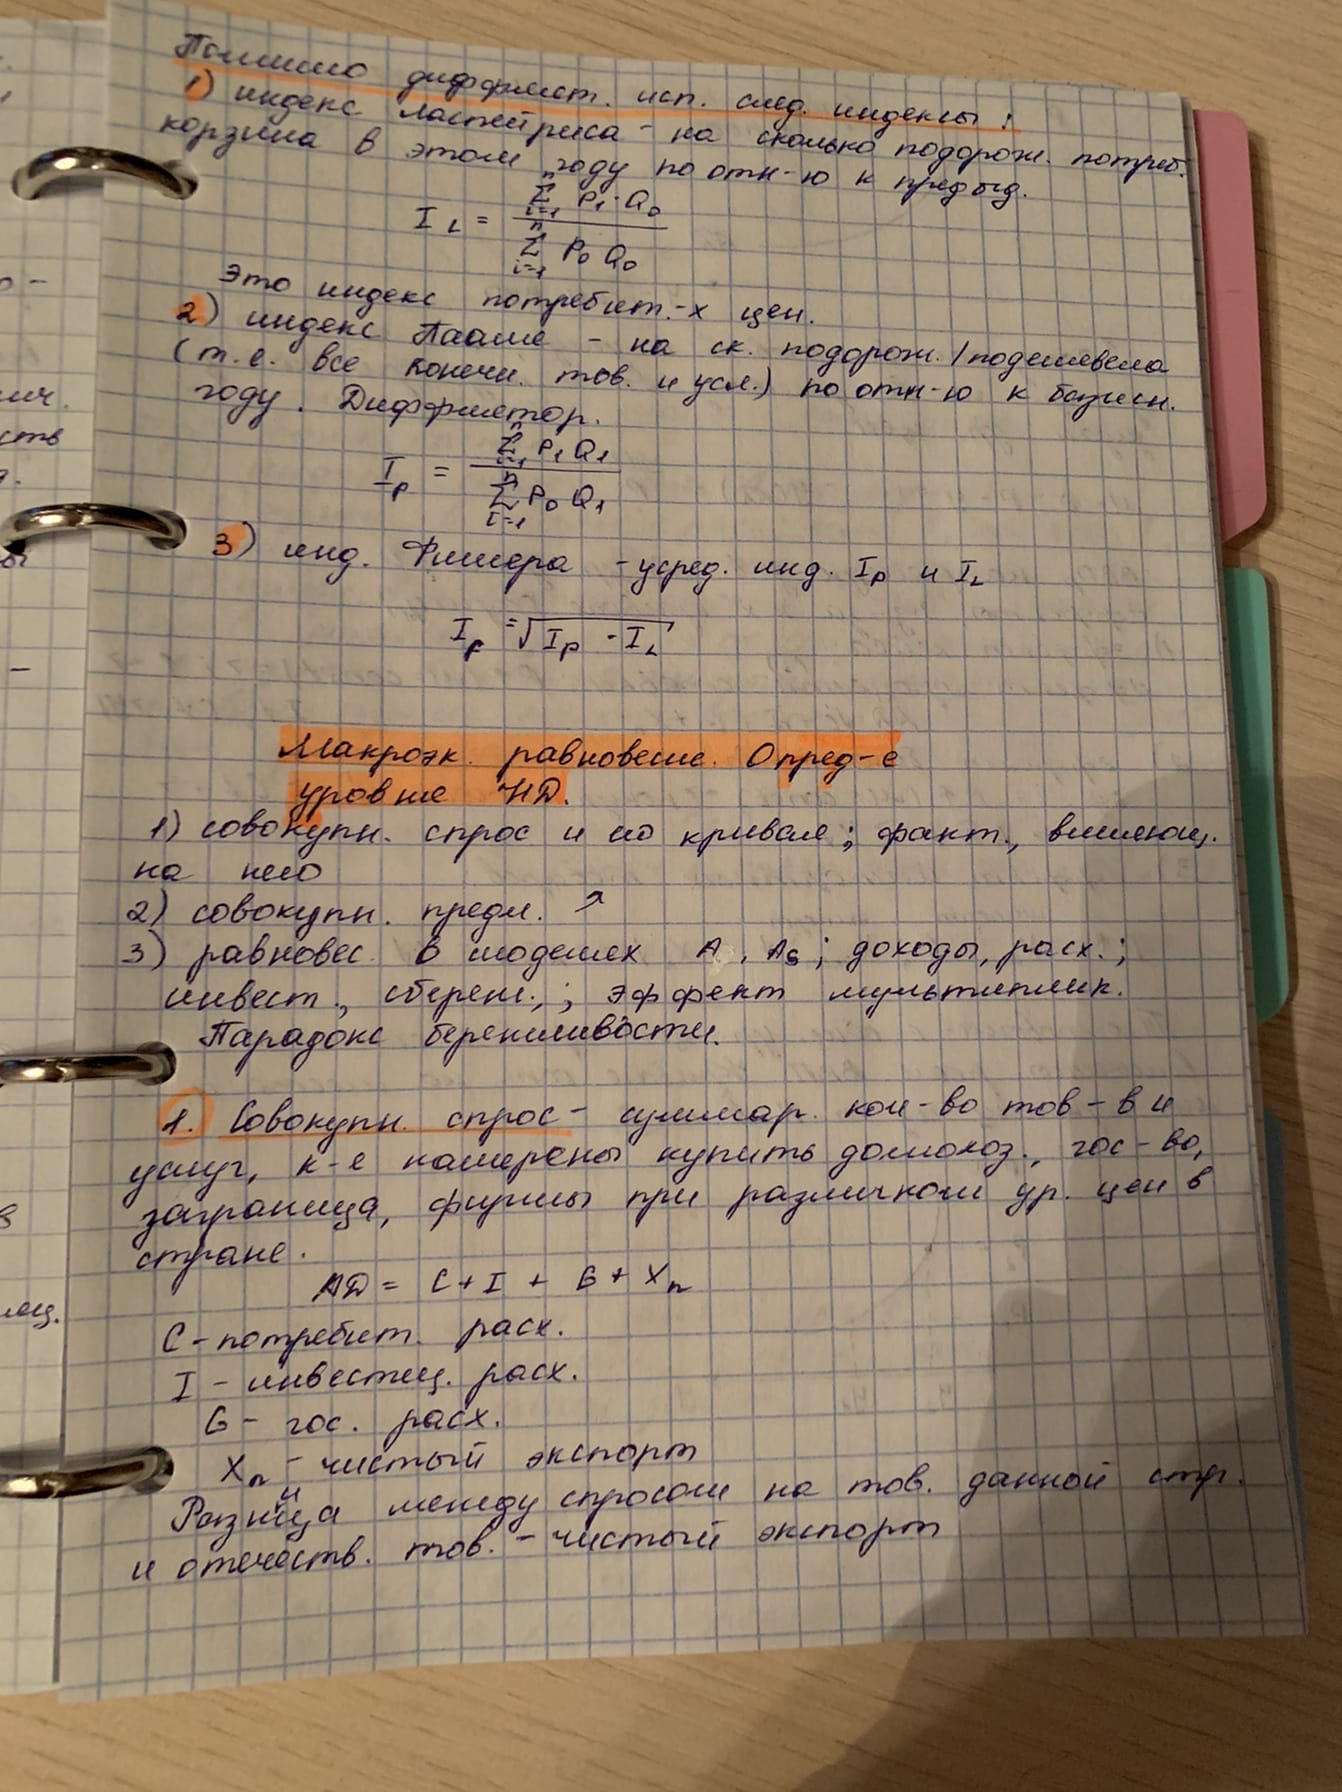 Помимо дефлят. исп. след. индексы:
1) индекс Ласпейриса - на сколько подорож. потреб.
корзина в этом году по отн-ю к предыд.
I L = Σ P1·Q0 / Σ P0 Q0
n i=1 n i=1
Это индекс потребит.-х цен.
2) индекс Пааше - на ск. подорож./подешевела
(т.е. все конечн. тов. и усл.) по отн-ю к базисн.
году.
I p = Σ P1 Q1 / Σ P0 Q1
n i=1 n i=1
3) инд. Фишера - усред. инд. Ip и IL
IF = √Ip · IL
Макроэк. равновесие. Опред-е
уровне НД.
1) совокупн. спрос и его кривая; факт., влияющ.
на него
2) совокупн. предл. ↗
3) равновес. в моделях A , AS; доходы, расх.;
инвест., сбереж.,; эффект мультиплик.
Парадокс бережливости.
1. Совокупн. спрос - суммар. кол-во тов-в и
услуг, к-е намерены купить домохоз., гос-во,
заграница, фирмы при различном ур. цен в
стране.
AD = C + I + G + Xn
C - потребит. расх.
I - инвестиц. расх.
G - гос. расх.
Xn - чистый экспорт
Разница между спросом на тов. данной стр.
и отечеств. тов. - чистый экспорт